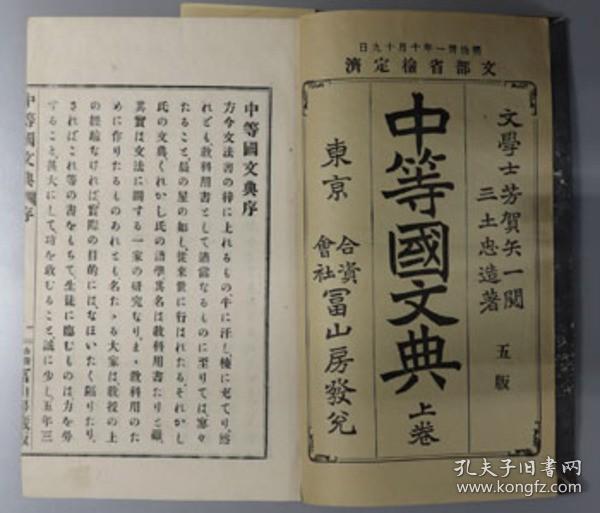 明治卅一年十月十九日
文部省檢定濟
文學士芳賀矢一閱
三土忠造著
五版
中等國文典
上卷
東京
合資會社
冨山房發兌
中等國文典序
方今文法書の梓に上れるもの牛に汗し、棟に充てり、然
れども、教科用書として適當なるものに至りては、寥々
たること、晨の星の如し、從來世に行はれたる、それがし
氏の文典、くれがし氏の語學、其名は教科用書たりと雖、
其實は文法に關する一家の研究なり、ま教科用のた
めに作りたるものあれとも、名たゝる大家は、教授の上
の經驗なければ、實際の目的には、なほいたく隔りたり、
さればこれ等の書をもちて、生徒に臨むものは、力を勞
すること、甚大にして、功を收むること、誠に少し、五年三
中等國文典 序
一
孔夫子旧书网
www.kongfz.com